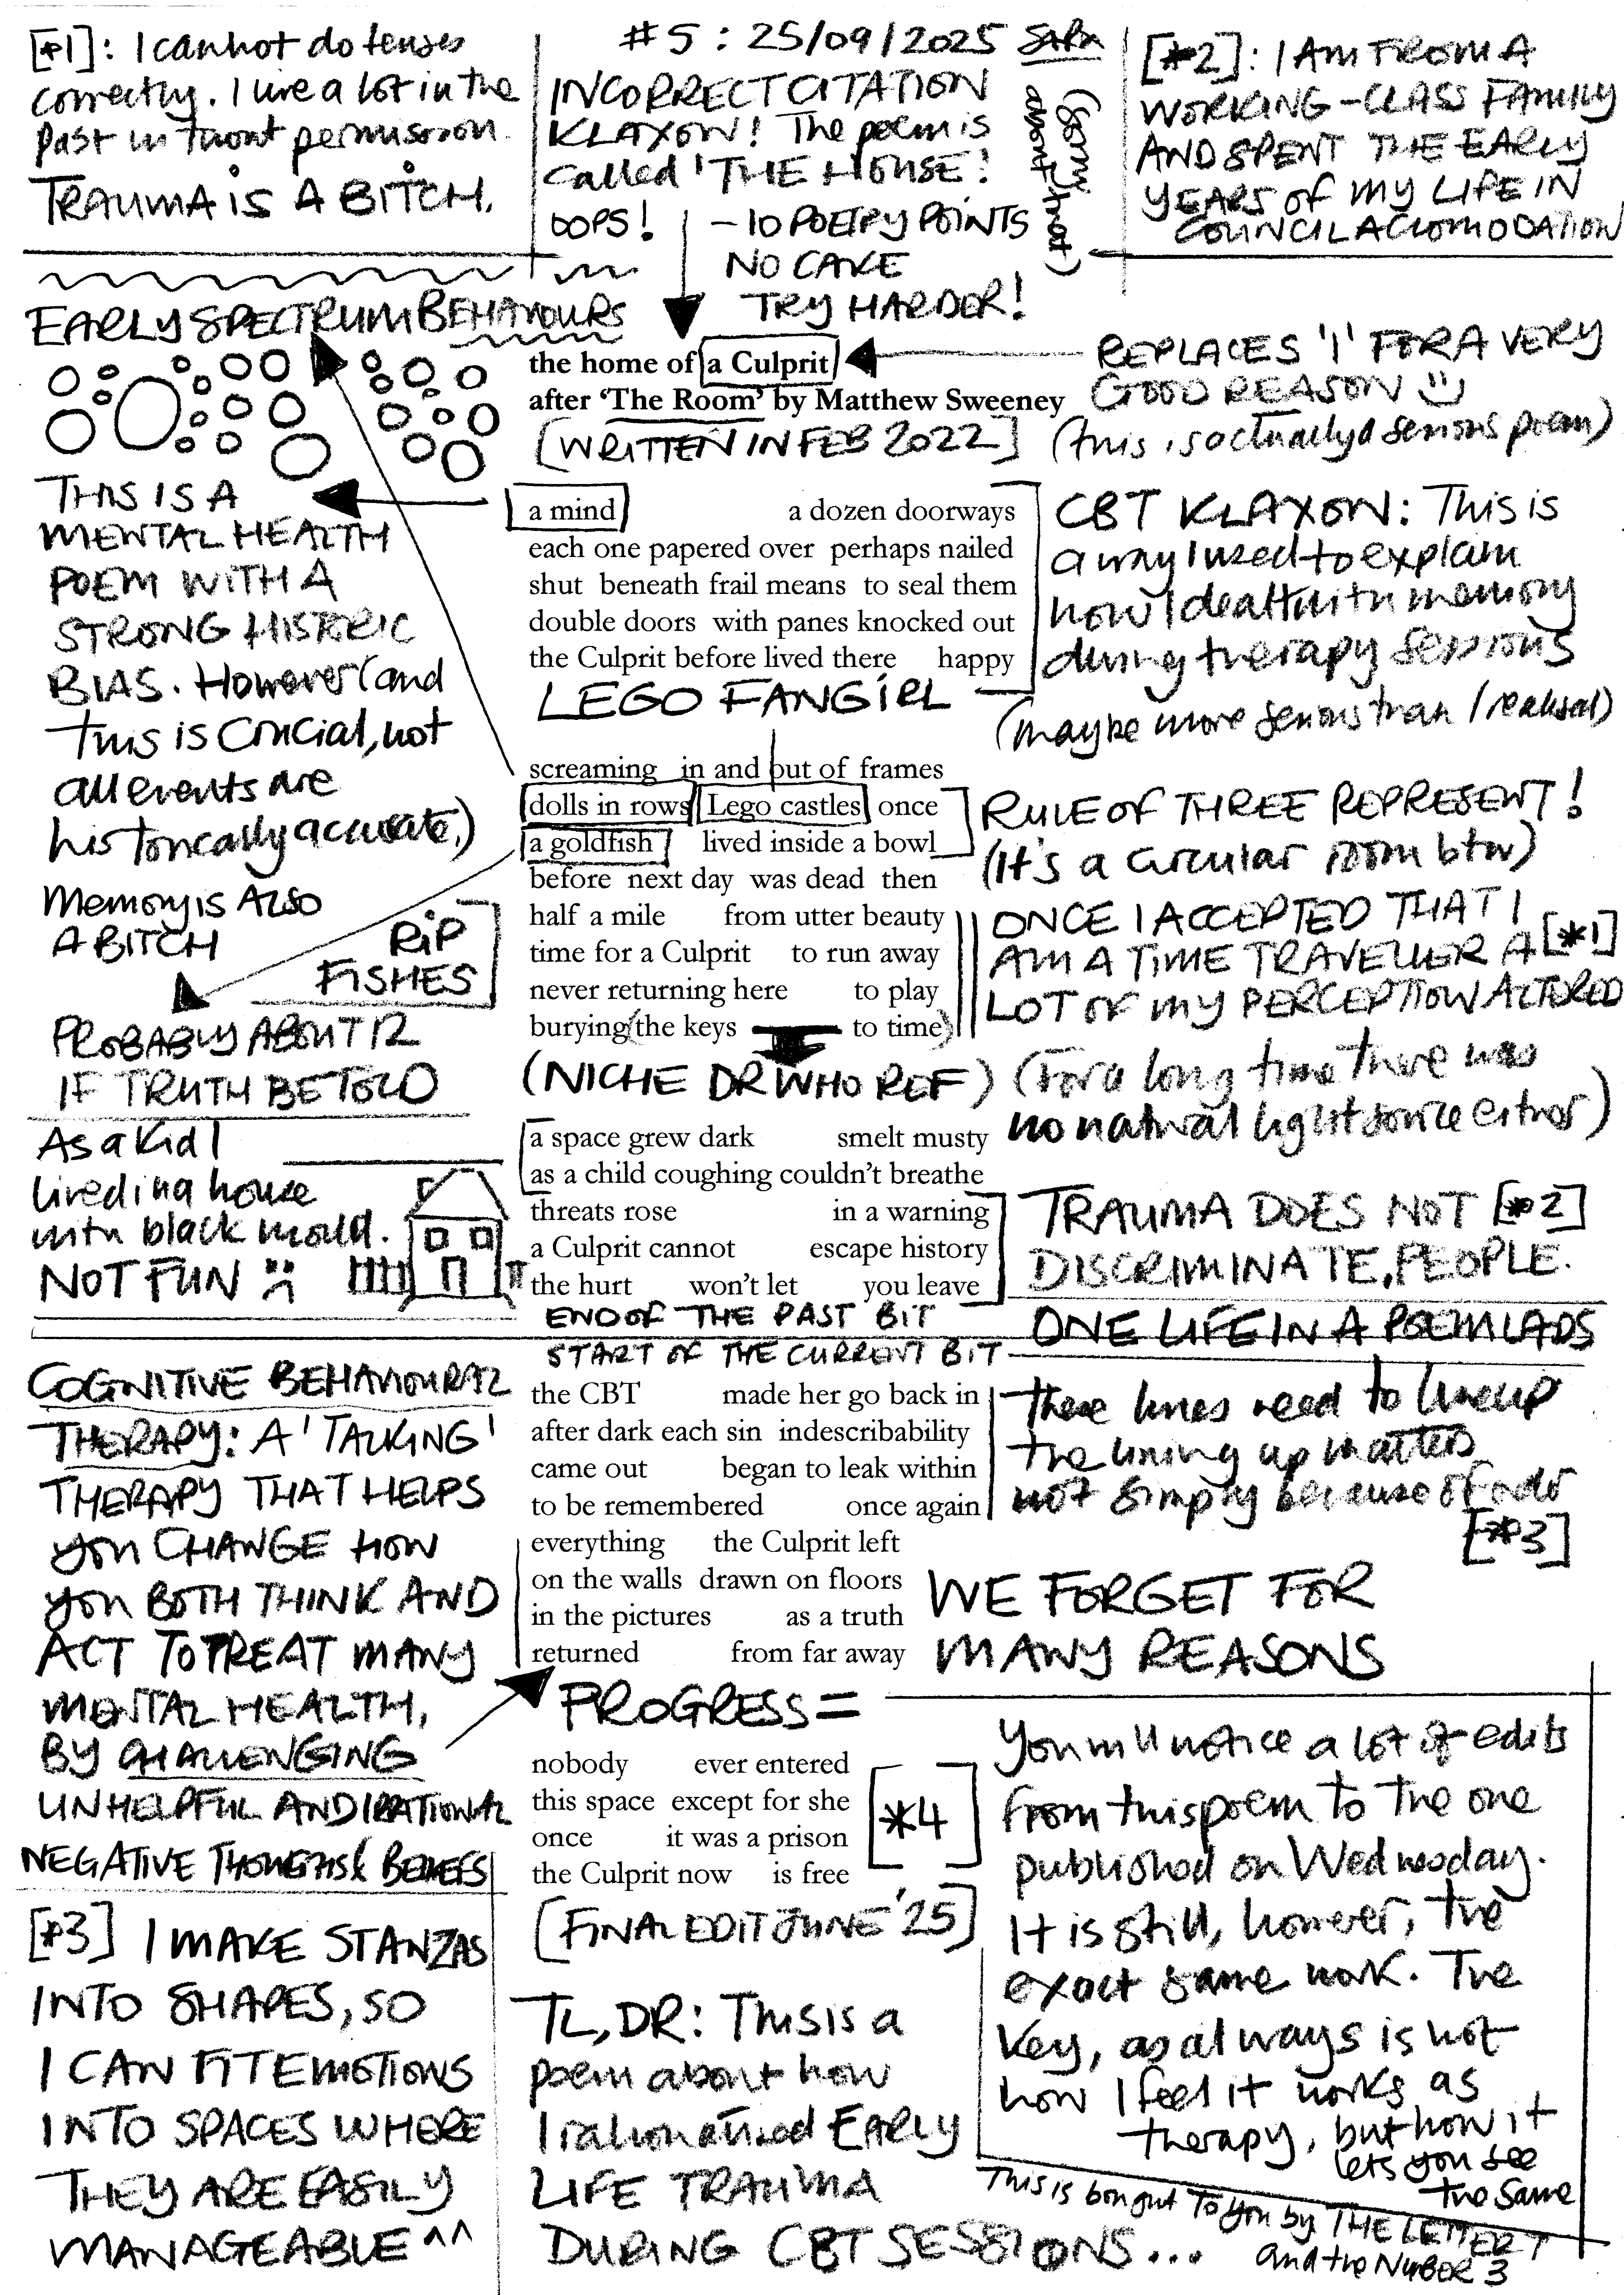 [*1]: I cannot do tenses
correctly. I live a lot in the
past without permission.
TRAUMA IS A BITCH.
#5 : 25/09/2025
INCORRECT CITATION
KLAXON! The poem is
called 'THE HOUSE'!
OOPS!
- 10 POETRY POINTS
NO CAKE
TRY HARDER!
(Sorry/not)
[*2]: I AM FROM A
WORKING-CLASS FAMILY
AND SPENT THE EARLY
YEARS OF MY LIFE IN
COUNCIL ACCOMODATION
EARLY SPECTRUM BEHAVIOURS
the home of a Culprit
after 'The Room' by Matthew Sweeney
[WRITTEN IN FEB 2022]
REPLACES 'I' FOR A VERY
GOOD REASON
(this is actually a serious poem)
THIS IS A
MENTAL HEALTH
POEM WITH A
STRONG HISTORIC
BIAS. However (and
this is crucial, not
all events are
historically accurate.)
Memory is ALSO
A BITCH
RIP
FISHES
PROBABLY ABOUT 12
IF TRUTH BE TOLD
a mind a dozen doorways
each one papered over perhaps nailed
shut beneath frail means to seal them
double doors with panes knocked out
the Culprit before lived there happy
LEGO FANGIRL
CBT KLAXON: This is
a way I used to explain
how I dealt with memory
during therapy sessions
(maybe more serious than I realised)
screaming in and out of frames
dolls in rows Lego castles once
a goldfish lived inside a bowl
before next day was dead then
half a mile from utter beauty
time for a Culprit to run away
never returning here to play
burying (the keys to time)
(NICHE DR WHO REF)
RULE OF THREE REPRESENT!
(It's a circular room btw)
ONCE I ACCEPTED THAT I
AM A TIME TRAVELLER A [*1]
LOT OF MY PERCEPTION ALTERED
(For a long time there was
no natural light source either)
As a kid I
lived in a house
with black mould.
NOT FUN
a space grew dark smelt musty
as a child coughing couldn't breathe
threats rose in a warning
a Culprit cannot escape history
the hurt won't let you leave
END OF THE PAST BIT
TRAUMA DOES NOT [*2]
DISCRIMINATE, PEOPLE.
ONE LIFE IN A POEM LADS
START OF THE CURRENT BIT
COGNITIVE BEHAVIOURAL
THERAPY: A 'TALKING'
THERAPY THAT HELPS
you CHANGE HOW
you BOTH THINK AND
ACT TO TREAT MANY
MENTAL HEALTH,
BY CHALLENGING
UNHELPFUL AND IRRATIONAL
NEGATIVE THOUGHTS & BELIEFS
the CBT made her go back in
after dark each sin indescribability
came out began to leak within
to be remembered once again
everything the Culprit left
on the walls drawn on floors
in the pictures as a truth
returned from far away
PROGRESS =
These lines need to line up
the lining up matters
not simply because of
[*3]
WE FORGET FOR
MANY REASONS
nobody ever entered
this space except for she
once it was a prison
the Culprit now is free
[*4]
[FINAL EDIT JUNE '25]
You will notice a lot of edits
from this poem to the one
published on Wednesday.
It is still, however, the
exact same work. The
key, as always is not
how I feel it works as
therapy, but how it
lets you see
the same
[*3] I MAKE STANZAS
INTO SHAPES, SO
I CAN FIT EMOTIONS
INTO SPACES WHERE
THEY ARE EASILY
MANAGEABLE ^^
TL,DR: This is a
poem about how
I rationalised EARLY
LIFE TRAUMA
DURING CBT SESSIONS...
This is bought to you by THE LETTER T
and the NUMBER 3